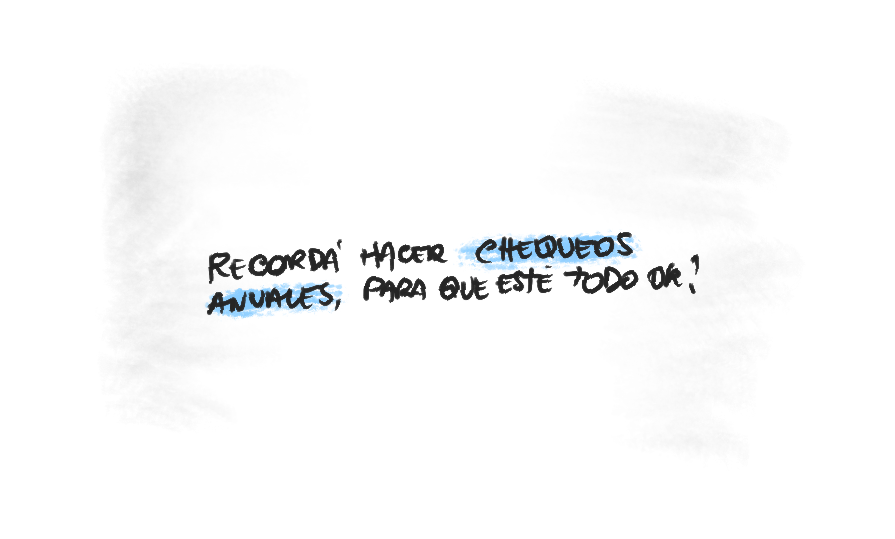 RECORDÁ HACER CHEQUEOS
ANUALES, PARA QUE ESTÉ TODO OK!